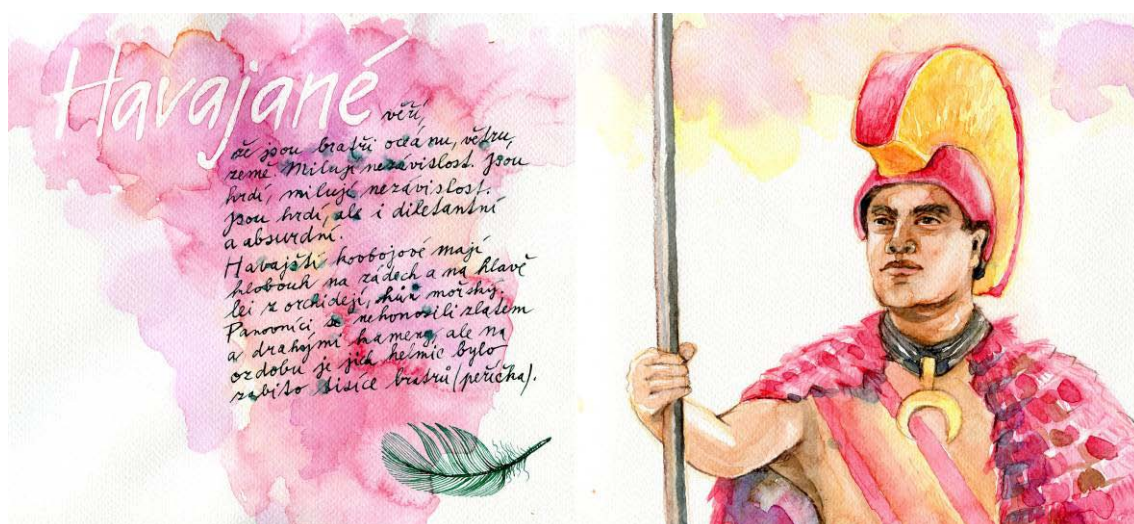 Havajané věří,
že jsou bratři oceánu, větru,
země. Milují nezávislost. Jsou
hrdí, milují nezávislost.
Jsou hrdí, ale i diletantní
a absurdní.
Havajští kovbojové mají
klobouk na zádech a na hlavě
lei z orchidejí, mořských.
Panovníci se nehonosili zlatem
a drahými kameny, ale na
ozdobu je jich helmic bylo
zabito tisíce bratrů (peříčka).